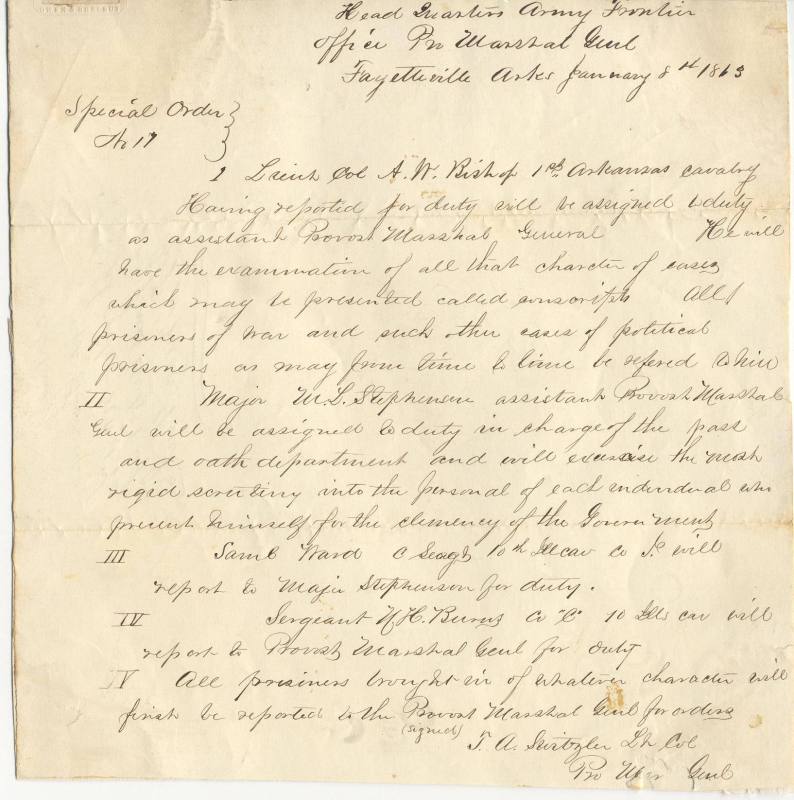 Head Quarters Army Frontier
Office Pro Marshal Genl
Fayetteville Arks January 8th 1863
Special Order
No 17
I Lieut Col A. W. Bishop 1st Arkansas cavalry
Having reported for duty will be assigned to duty
as assistant Provost Marshal General He will
have the examination of all that charcter of cases
which may be presented called conscripts All
prisoners of war and such other cases of political
prisoners as may from time to time be refered to him
II Major M. L. Stephenson assistant Provost Marshal
Genl will be assigned to duty in charge of the pass
and oath department and will exercise the most
rigid scrutiny into the personal of each individual who
present himself for the clemency of the Government
III Saml Ward 10th Ills cav Co will
report to Major Stephenson for duty.
IV Sergeant H. Burns Co "C" 10 Ills cav will
report to Provost Marshal Genl for duty
V All prisiners brought in of whatever character will
first be reported to the Provost Marshal Genl for orders
(signed) T. A. Switzler Lt Col
Pro Mar Genl